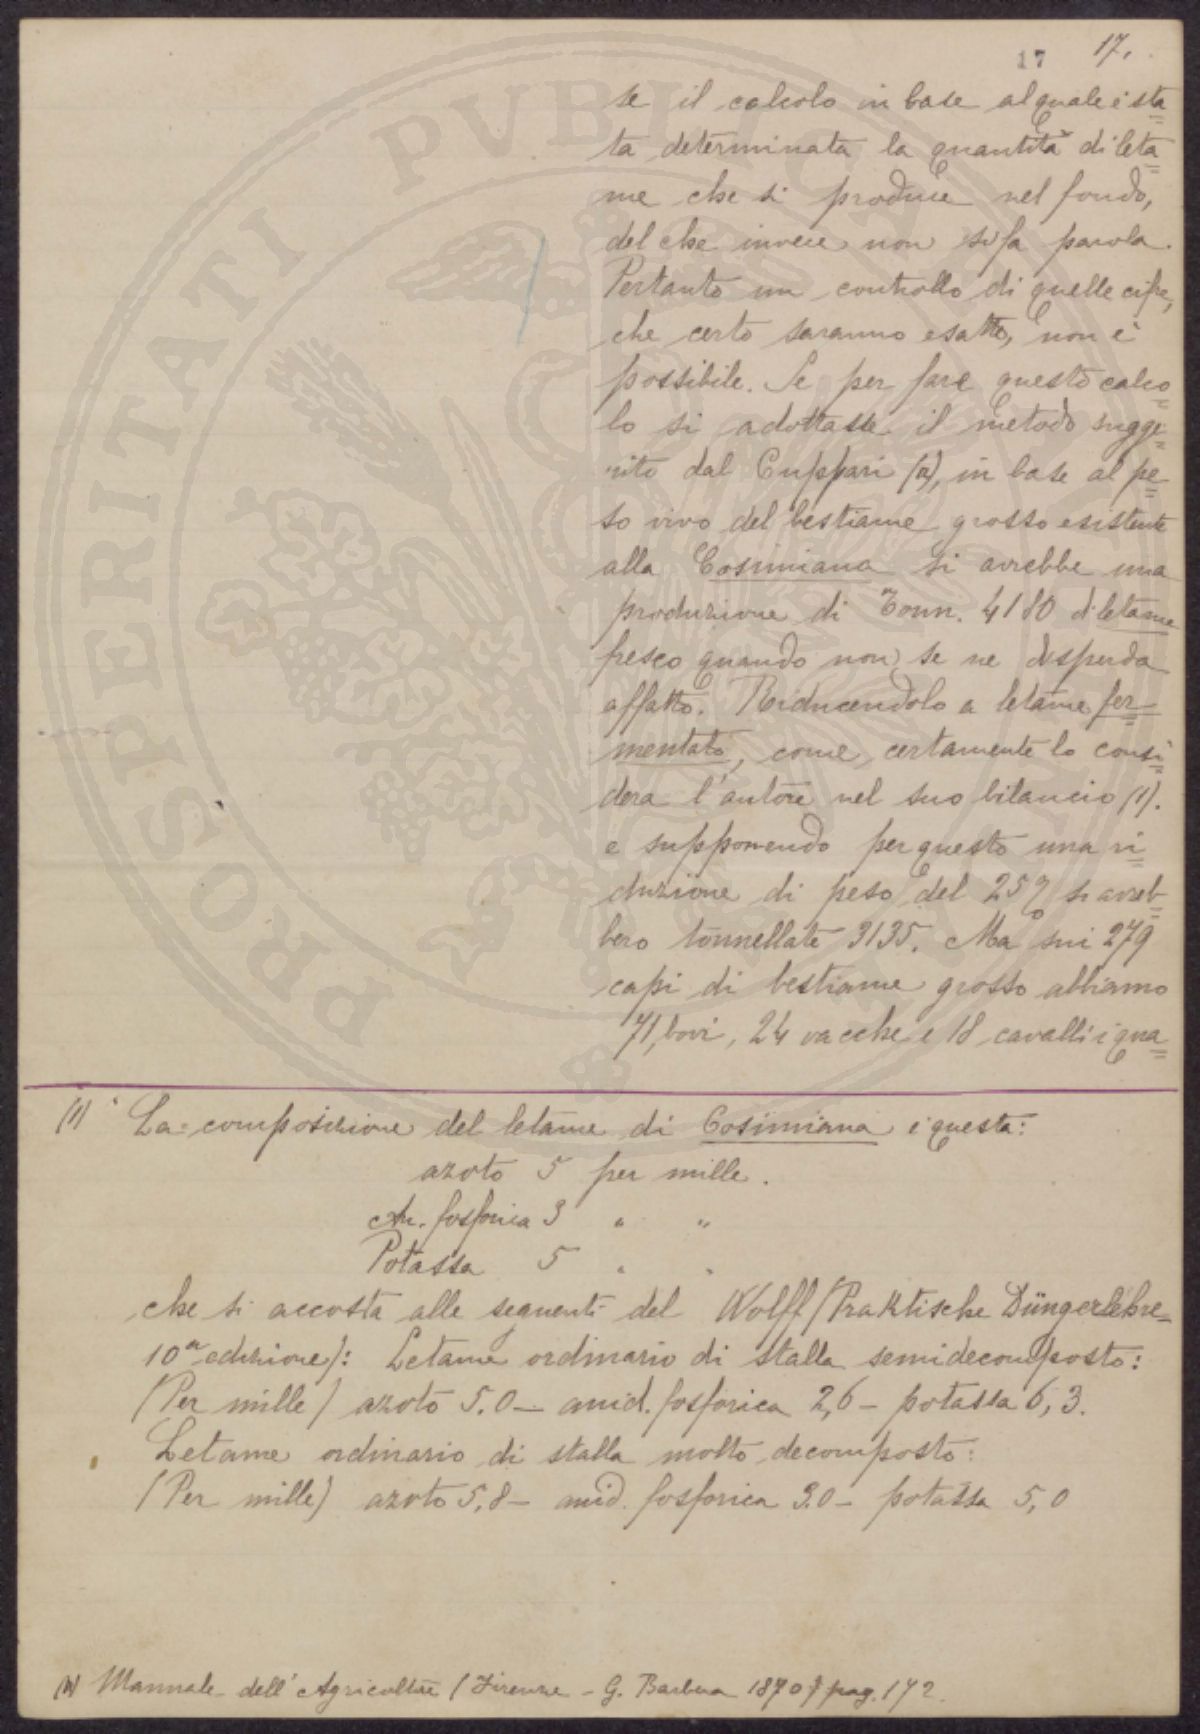 17 17.
se il calcolo in base al quale è sta=
ta determinata la quantità di leta=
me che si produce nel fondo,
del che invece non si fa parola.
Pertanto un controllo di quelle cifre,
che certo saranno esatte, non è
possibile. Se per fare questo calco=
lo si adottasse il metodo sugge=
rito dal Cuppari (2), in base al pe=
so vivo del bestiame grosso esistente
alla Cosimiana si avrebbe una
produzione di Tonn. 4180 di letame
fresco quando non se ne disperda
affatto. Riducendolo a letame fer=
mentato, come certamente lo consi=
dera l'autore nel suo bilancio (1).
e supponendo per questo una ri=
duzione di peso del 25% si avreb=
bero tonnellate 3135. Ma sui 279
capi di bestiame grosso abbiamo
71 bovi, 24 vacche e 18 cavalli i qua=
(1) La composizione del letame di Cosimiana è questa:
azoto 5 per mille.
An. fosforica 3 " "
Potassa 5 " "
che si accosta alle seguenti del Wolff (Praktische Düngerlehre=
10ª edizione): Letame ordinario di stalla semidecomposto:
(Per mille) azoto 5.0 - anid. fosforica 2,6 - potassa 6,3.
Letame ordinario di stalla molto decomposto:
(Per mille) azoto 5,8 - anid. fosforica 3.0 - potassa 5,0
(2) Manuale dell'Agricoltore (Firenze - G. Barbera 1870) pag. 172.
PROSPERITATI PVBLIC